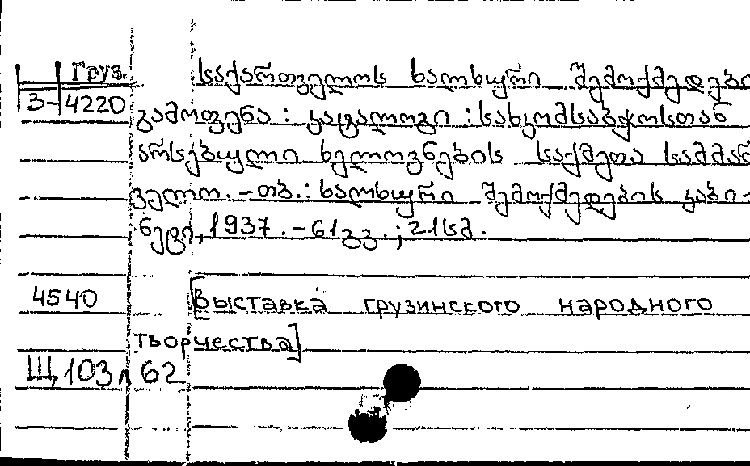 Груз. საქართველოს ხალხური შემოქმედები
3-4220 გამოფენა: კატალოგი: სახკომსაბჭოსთან
არსებული ხელოვნების საქმეთა სამმარ
ველო. - თბ.: ხალხური შემოქმედების კაბი-
ნეტი, 1937. - 61 გვ.; 21სმ.
4540 [Выставка грузинского народного
творчества]
Щ,103л62